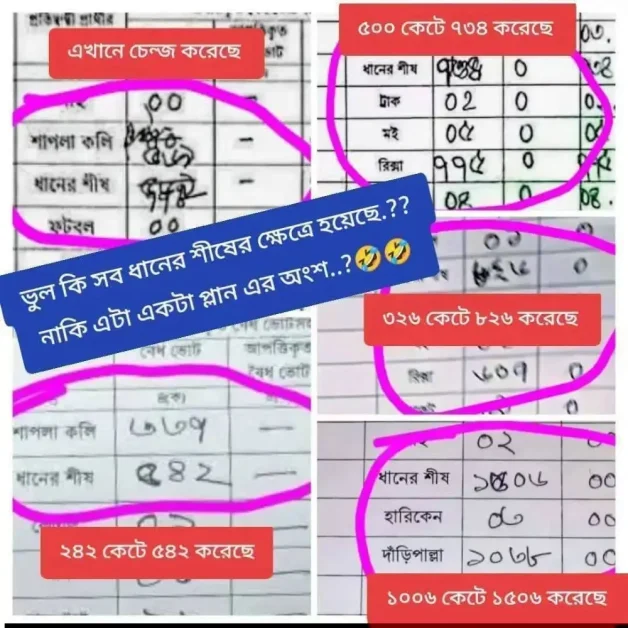 প্রতিদ্বন্দ্বী প্রার্থীর
এখানে চেন্জ করেছে
০০ –
শাপলা কলি –
ধানের শীষ –
ফুটবল ০০
৫০০ কেটে ৭৩৪ করেছে
০৩.
ধানের শীষ ৭৩৪ ০
ট্রাক ০২ ০
মই ০৫ ০ ০৫
রিক্সা ৭৭৫ ০ ৭৭৫
০৪ ০ ০৪.
ভুল কি সব ধানের শীষের ক্ষেত্রে হয়েছে.??
নাকি এটা একটা প্লান এর অংশ..?🤣🤣
০
৩২৬ কেটে ৮২৬ করেছে
রিক্সা ৬০৭ ০
বৈধ ভোট আপত্তিকৃত
বৈধ ভোট
৪(ক)
শাপলা কলি ৩৩৭ —
ধানের শীষ ৫৪২ —
২৪২ কেটে ৫৪২ করেছে
০২
ধানের শীষ ১৫০৬ ০০
হারিকেন ০০
দাঁড়িপাল্লা ১০৬৮ ০০
১০০৬ কেটে ১৫০৬ করেছে